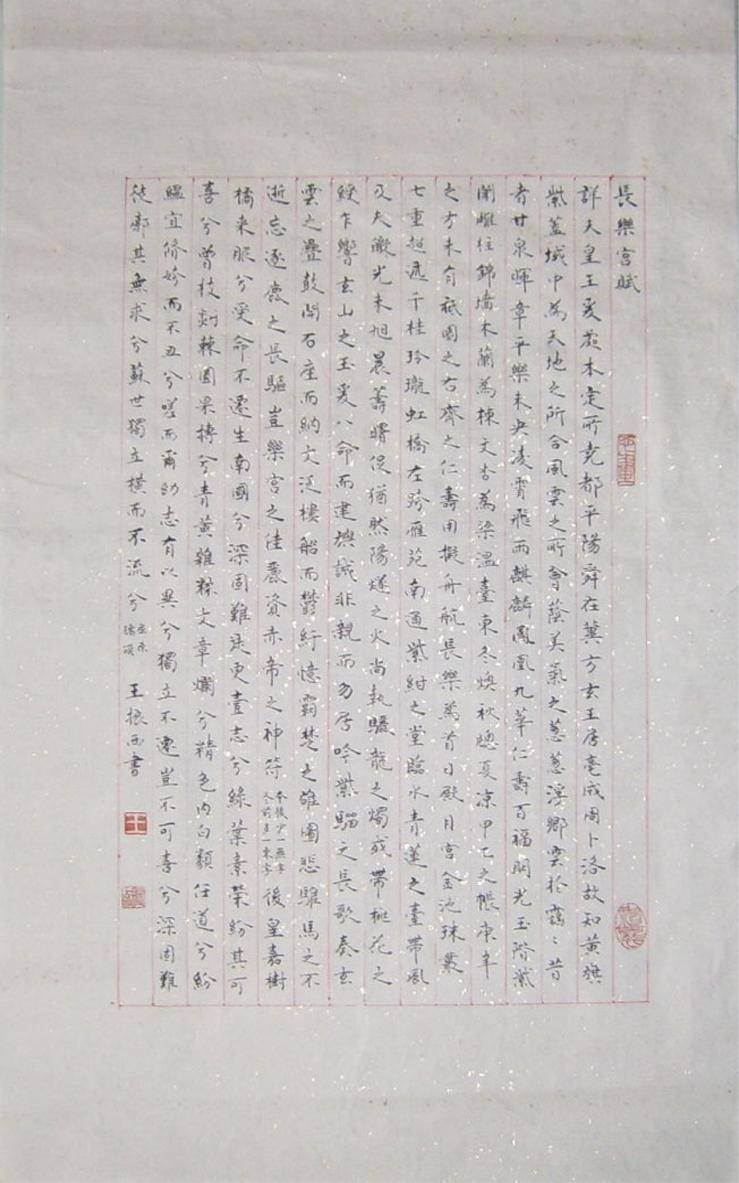 長樂宮賦
詳夫皇王爰茲本定所堯都平陽舜在冀方玄王居亳成周卜洛故知黃旗
紫蓋域中為天地之所合風雲之所會蔭美氣之蔥蔥浮鄉雲於靄〻昔
者甘泉暉章平樂未央凌霄飛雨麒麟鳳凰九華仁壽百福明光玉階紫
闥雕柱錦墻木蘭為棟文杏為梁溫臺東冬煥秋窗夏涼甲乙之帳庚辛
之方未有祇園之右齊之仁壽用擬舟航長樂為首日殿月宮金池珠叢
七重超遞千桂玲瓏虹橋左跨雁苑南通紫紺之堂臨水青蓮之臺帶風
及夫澂光未旭晨籌猶然陽燧之火尚執驪龍之燭或帶桃花之
綬乍響玄山之玉爰八命而建旟誠非親而勿居吟紫騮之長歌奏玄
雲之疊鼓開石座而納文泛樓船而鬱紆憶霸楚之雄圖悲騅馬之不
逝忘逐鹿之長驅豈樂宮之佳麗資赤帝之神符 後皇嘉樹
橘來服兮受命不遷生南國兮深固難徙更壹志兮綠葉素榮紛其可
喜兮曾枝剡棘圓果摶兮青黃雜糅文章爛兮精色內白類任道兮紛
緼宜脩姱而不丑兮嗟而爾幼志有以異兮獨立不遷豈不可喜兮深固難
徙廓其無求兮蘇世獨立橫而不流兮 屈原橘頌 王振西書